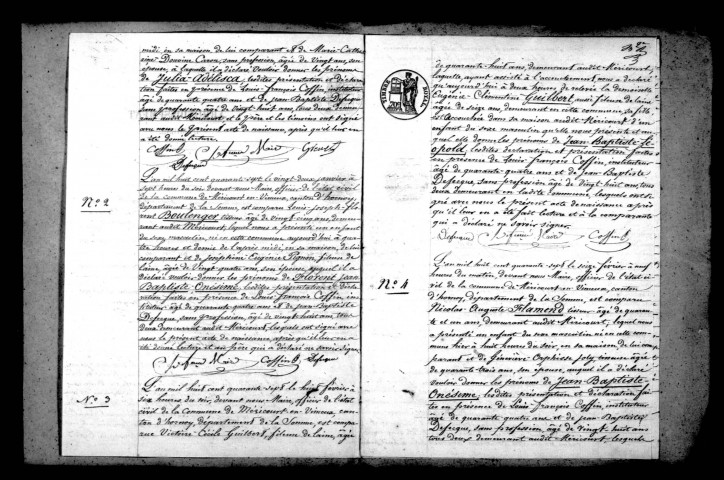 midi en sa maison de lui comparant et de Marie Cathe
rine Domine Caron, sans profession, âgée de vingt ans, son
épouse, à laquelle il a déclaré vouloir donner les prénoms
de Julia Adlisca, lesdites présentation et déclara
tion faites en présence de Louis François Coffin, instituteur
âgé de quarante quatre ans et de Jean Baptiste Defeque
sans profession âgé de vingt huit ans, tous deux demeu
rant audit Méricourt et le père et les témoins ont signé
avec nous le présent acte de naissance, après qu'il leur en
a été donné lecture.
Coffin
Defeque
Nº 2
L'an mil huit cent quarante sept le vingt deux janvier à
sept heures du soir devant nous Maire, officier de l'état civil
de la commune de Méricourt en Vimeu, canton d'hornoy,
département de la Somme, est comparu Louis Joseph Flo
rent Boulenger, tisseur, âgé de vingt cinq ans, demeu
rant audit Méricourt, lequel nous a présenté un enfant
du sexe masculin, né en cette commune, aujourd'hui à quatre
heures et demie de l'après midi, en sa maison, de lui
comparant et de Joséphine Eugénie Pignon, fileuse de
laine, âgée de vingt quatre ans, son épouse, auquel il a
déclaré vouloir donner les prénoms de Florent Jean
Baptiste Onésime, lesdites présentation et décla
ration faites en présence de Louis François Coffin, ins
tituteur, âgé de quarante quatre ans et de Jean Baptiste
Defeque, sans profession, âgé de vingt huit ans, tous
deux demeurant audit Méricourt, lesquels ont signé avec
nous le présent acte de naissance, après qu'il leur en a
été donné lecture et au père qui a déclaré ne savoir signer.
Coffin Defeque
Nº 3
L'an mil huit cent quarante sept le huit février à
six heures du soir, devant nous, Maire, officier de l'état
civil de la Commune de Méricourt en Vimeu, can
ton d'hornoy, département de la Somme, est compa
rue Victoire Cécile Guilbert, fileuse de laine, âgée
de quarante huit ans, demeurant audit Méricourt,
laquelle, ayant assisté à l'accouchement nous a déclaré
qu'aujourd'hui à deux heures de relevée la demoiselle
Eugénie Clémentine Guilbert, aussi fileuse de laine
âgée de seize ans, demeurant en cette commune, sa fille
est accouchée dans sa maison audit Méricourt d'un
enfant du sexe masculin qu'elle nous présente et au
quel elle donne les prénoms de Jean Baptiste Lé
opold, lesdites déclaration et présentation faites
en présence de Louis François Coffin, instituteur,
âgé de quarante quatre ans et de Jean Baptiste
Defeque, sans profession, âgé de vingt huit ans, tous
deux demeurant en ladite commune, lesquels ont si
gné avec nous le présent acte de naissance après
qu'il leur en a été fait lecture et à la comparante
qui a déclaré ne savoir signer.
Defeque Coffin
Nº 4
L'an mil huit cent quarante sept le seize février à neuf
heures du matin, devant nous Maire, officier de l'état ci
vil de la commune de Méricourt en Vimeu, canton
d'hornoy, département de la Somme, est comparu
Nicolas Auguste Flamend tisseur, âgé de quaran
te et un ans, demeurant audit Méricourt, lequel nous
a présenté un enfant du sexe masculin, né en cette com
mune hier à huit heures du soir, en sa maison, de lui com
parant et de Geneviève Euphrosine Joly, couseuse âgée
de quarante trois ans, son épouse, auquel il a déclaré
vouloir donner les prénoms de Jean Baptiste
Onésime, lesdites présentation et déclaration fai
tes en présence de Louis François Coffin, instituteur
âgé de quarante quatre ans et de Jean Baptiste
Defeque, sans profession, âgé de vingt huit ans
tous deux demeurant audit Méricourt, lesquels